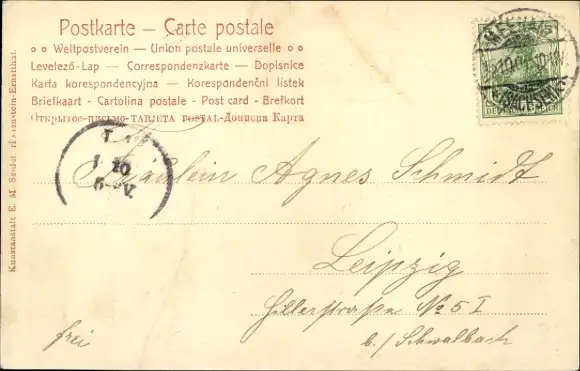 Postkarte – Carte postale
Weltpostverein – Union postale universelle
Levelező-Lap — Correspondenzkarte — Dopisnice
Karta korespondencyjna — Korespondenční lístek
Briefkaart - Cartolina postale - Post card - Brefkort
Открытое-письмо-TARJETA POSTAL-Дописна Карта
Kunstanstalt E. M. Seidel
Fräulein Agnes Schmidt
Leipzig
Hillerstraße No 5 I
b./ Schwalbach
frei